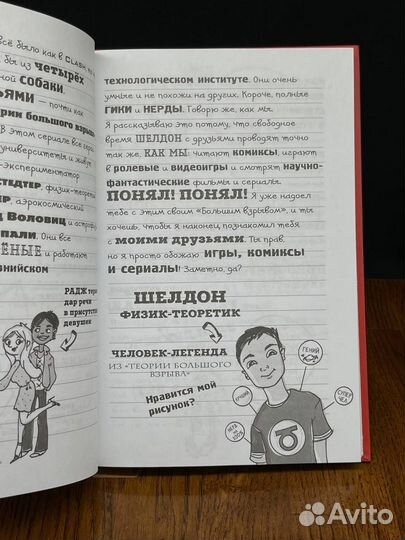 всё было как в CLASH
бы из четырёх
ной собаки.
ьями — почти как
рии большого взрыва
В этом сериале все серии
университеты и живут
-экспериментатор
стедтер, физик-теорети
пер, аэрокосмический
д Воловиц и астрофи
пали. Они все
ёные и работают
рнийском
РАДЖ теря
дар речи
в присутств
девушек
технологическом институте. Они очень
умные и не похожи на других. Короче, полные
гики и нерды. Говорю же, как мы.
Я рассказываю это потому, что свободное
время ШЕЛДОН с друзьями проводят точно
так же, КАК МЫ: читают комиксы, играют
в ролевые и видеоигры и смотрят научно-
фантастические фильмы и сериалы.
ПОНЯЛ! ПОНЯЛ! Я уже надоел
тебе с этим своим «Большим взрывом», и ты
хочешь, чтобы я наконец познакомил тебя
с моими друзьями. Ты прав,
но я просто обожаю игры, комиксы
и сериалы! Заметно, да?
ШЕЛДОН
ФИЗИК-ТЕОРЕТИК
ЧЕЛОВЕК-ЛЕГЕНДА
ИЗ «ТЕОРИИ БОЛЬШОГО
ВЗРЫВА»
Нравится мой
рисунок?
ГЕНИЙ
СУПЕР
ЧЕЛ
ЛУЧШИЙ
Avito